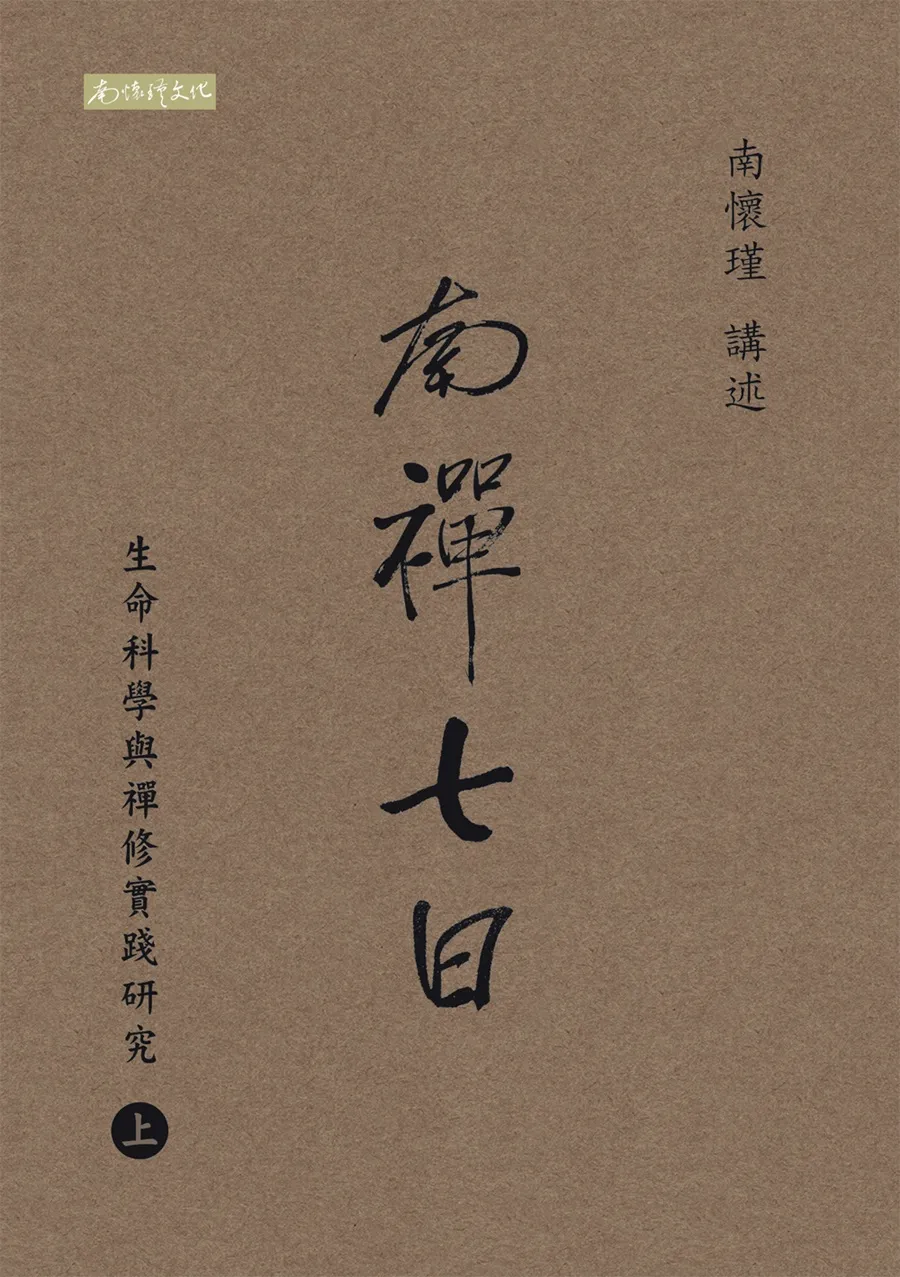 南懷瑾文化
南懷瑾 講述
南禪七日
生命科學與禪修實踐研究 上